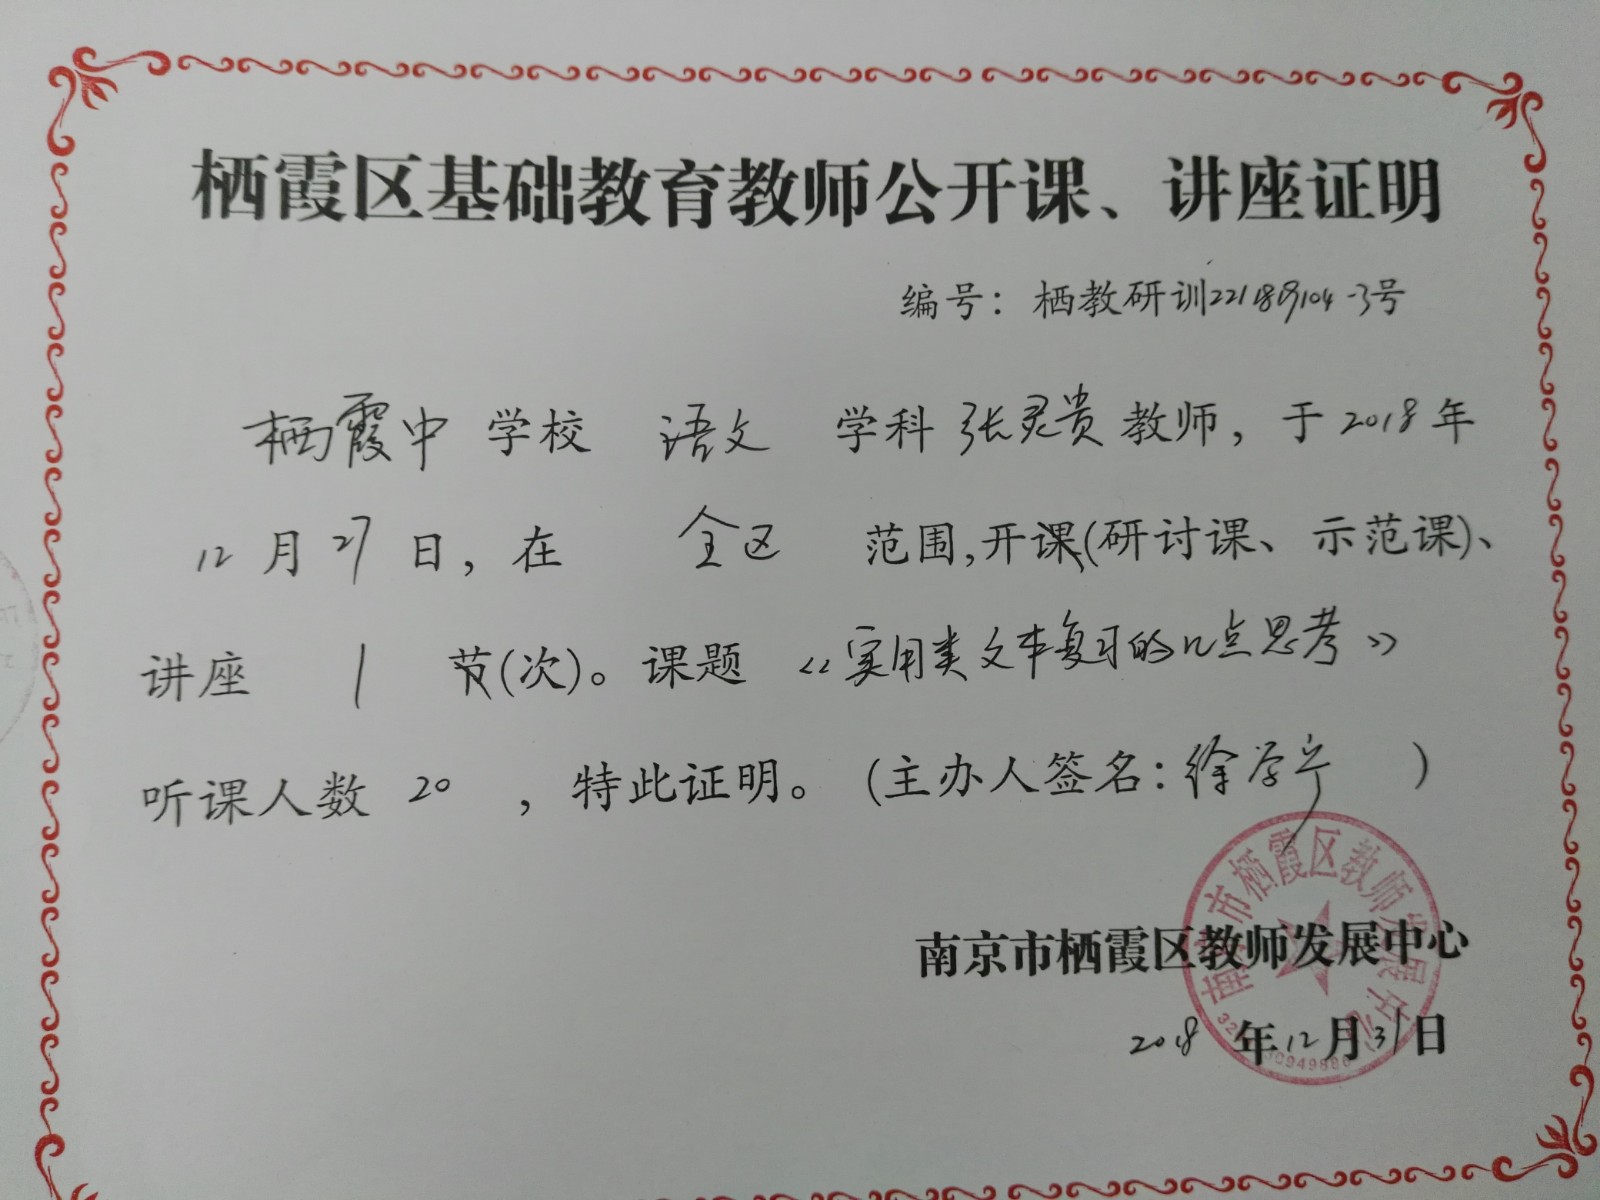 栖霞区基础教育教师公开课、讲座证明
编号：栖教研训221819104-3号
栖霞中 学校 语文 学科 张灵贵 教师，于 2018 年
12 月 27 日，在 全区 范围，开课(研讨课、示范课)、
讲座 1 节(次)。课题《实用类文本复习的几点思考》
听课人数 20 ，特此证明。（主办人签名：徐学宁 ）
南京市栖霞区教师发展中心
2018 年 12 月 31 日
南京市栖霞区教师发展中心